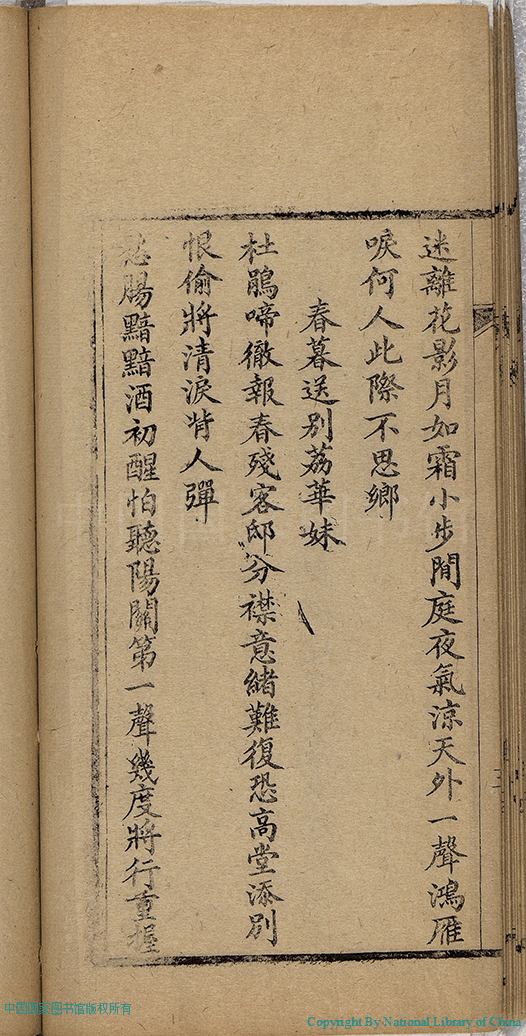 迷離花影月如霜小步閒庭夜氣涼天外一聲鴻雁
唳何人此際不思鄉
春暮送別荔華妹
杜鵑啼徹報春殘客邸分襟意緒難復恐高堂添別
恨偷將清淚背人彈
愁腸黯黯酒初醒怕聽陽關第一聲幾度將行重握
中国国家图书馆版权所有
Copyright By National Library of China